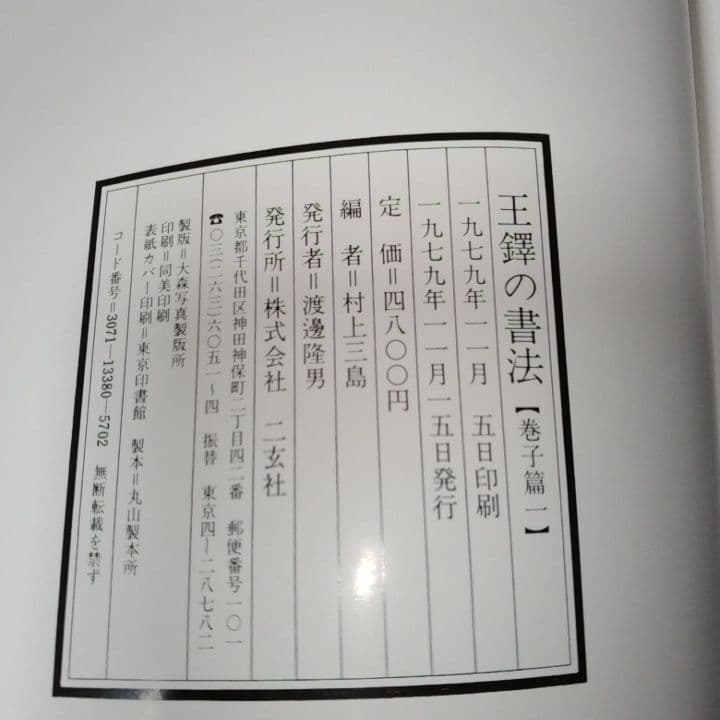 王鐸の書法【巻子篇一】
一九七九年一一月　五日印刷
一九七九年一一月一五日発行
定　価＝四八〇〇円
編　者＝村上三島
発行者＝渡邊隆男
発行所＝株式会社　二玄社
東京都千代田区神田神保町二丁目四二番　郵便番号一〇一
☎〇三(二六三)六〇五一～四　振替　東京四―二八七八二
製版＝大森写真製版所
印刷＝同美印刷
表紙カバー印刷＝東京印書館　製本＝丸山製本所
コード番号＝3071―13380―5702　無断転載を禁ず